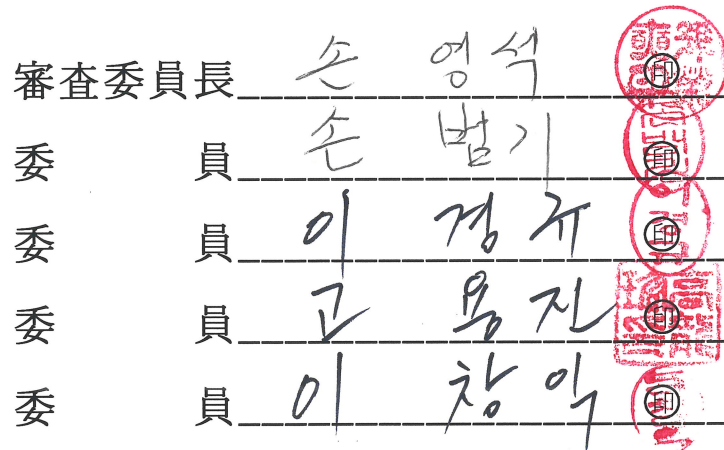 審査委員長 손 영석 ㊞
委 員 손 범기 ㊞
委 員 이 경규 ㊞
委 員 고 용진 ㊞
委 員 이 창익 ㊞